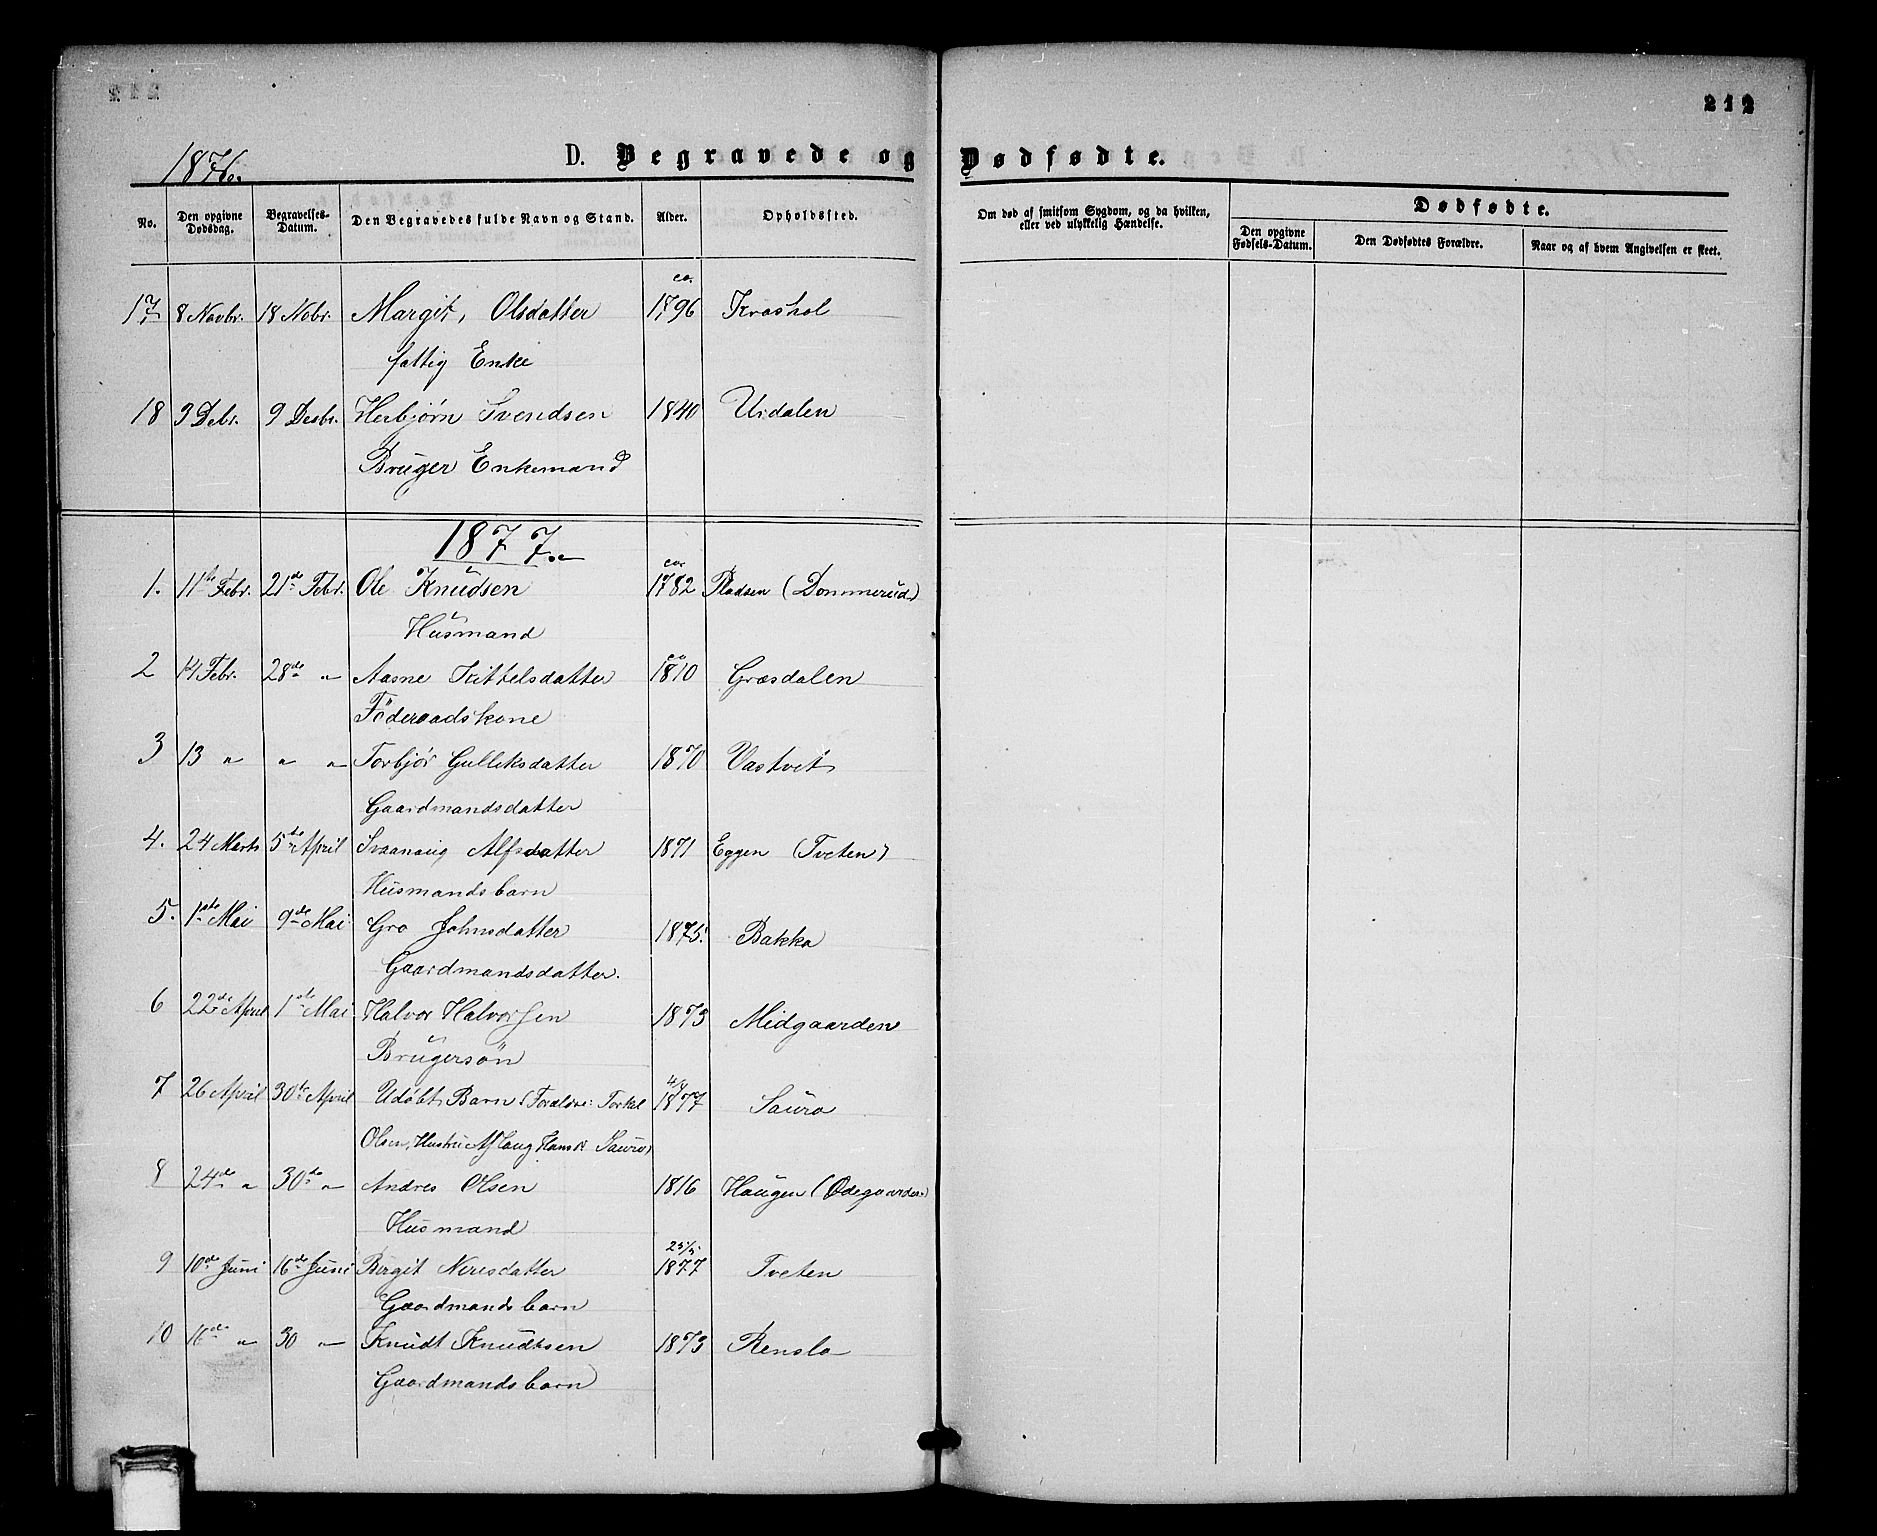 212
1876.
D. Begravede og Dødfødte.
No. Den opgivne Dødsdag. Begravelses-Datum. Den Begravedes fulde Navn og Stand. Alder. Opholdssted. Om død af smitsom Sygdom, og da hvilken, eller ved ulykkelig Hændelse. Dødfødte.
Den opgivne Fødsels-Datum. Den Dødfødtes Forældre. Naar og af hvem Angivelsen er skeet.
ca.
17 8 Novbr. 18 Nobr. Margit, Olsdatter 1796 Kroshol
fattig Enke
18 3 Debr. 9 Desbr. Herbjørn Svendsen 1840 Urdalen
Bruger Enkemand
1877.
ca.
1. 11te Febr. 21de Febr. Ole Knudsen 1782 Pladsen (Dommerud)
Husmand
ca
2 14 Febr. 28de " Aasne Kittelsdatter 1810 Græsdalen
Föderaadskone
3 13 " " " Torbjør Gulleksdatter 1870 Vastveit
Gaardmandsdatter
4. 24 Marts 5de April Svaanaug Alfsdatter 1871 Eggen (Tveten)
Husmandsbarn
5. 1ste Mai 9de Mai Gro Johnsdatter 1875. Bakka
Gaardmandsdatter.
6 22de April 1ste Mai Halvor Halvorsen 1873 Midgaarden
Brugersön
7 26 April 30te April Udøbt Barn (Foreldre: Torkel 1877 Sauro
Olsen, Hustru Aslaug Hansdr Sauro)
8 24de " 30de " Andres Olsen 1816 Haugen (Ødegaarden)
Husmand
25/5
9 10de Juni 16de Juni Birgit Nirisdatter 1877 Tveten
Gaardmandsbarn
10 16de " 30 " Knudt Knudtsen 1873 Renslo
Gaardmandsbarn